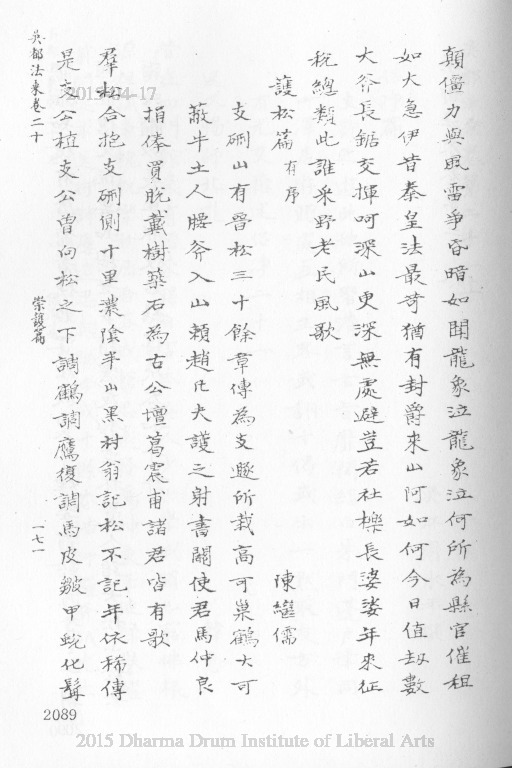 顛僵力與風雷爭昏暗如聞龍象泣龍象泣何所為縣官催租
如大急伊昔秦皇法最苛猶有封爵來山阿如何今日值劫數
大斧長鋸交揮呵深山更深無處避豈若社櫟長婆娑年來征
稅總類此誰采野老民風歌
護松篇 有序
陳繼儒
支硎山有晉松三十餘章傳為支遯所栽高可巢鶴大可
蔽牛土人腰斧入山賴趙凡夫護之射書關使君馬仲良
捐俸買脫戴樹築石為古公壇葛震甫諸君皆有歌
羣松合抱支硎側十里濃陰半山黑村翁記松不記年依稀傳
是支公植支公曾向松之下調鶴調鷹復調馬皮皴甲蛻化髯
吳都法乘卷二十
崇護篇
一七一
2089
2015-04-17
2015 Dharma Drum Institute of Liberal Arts